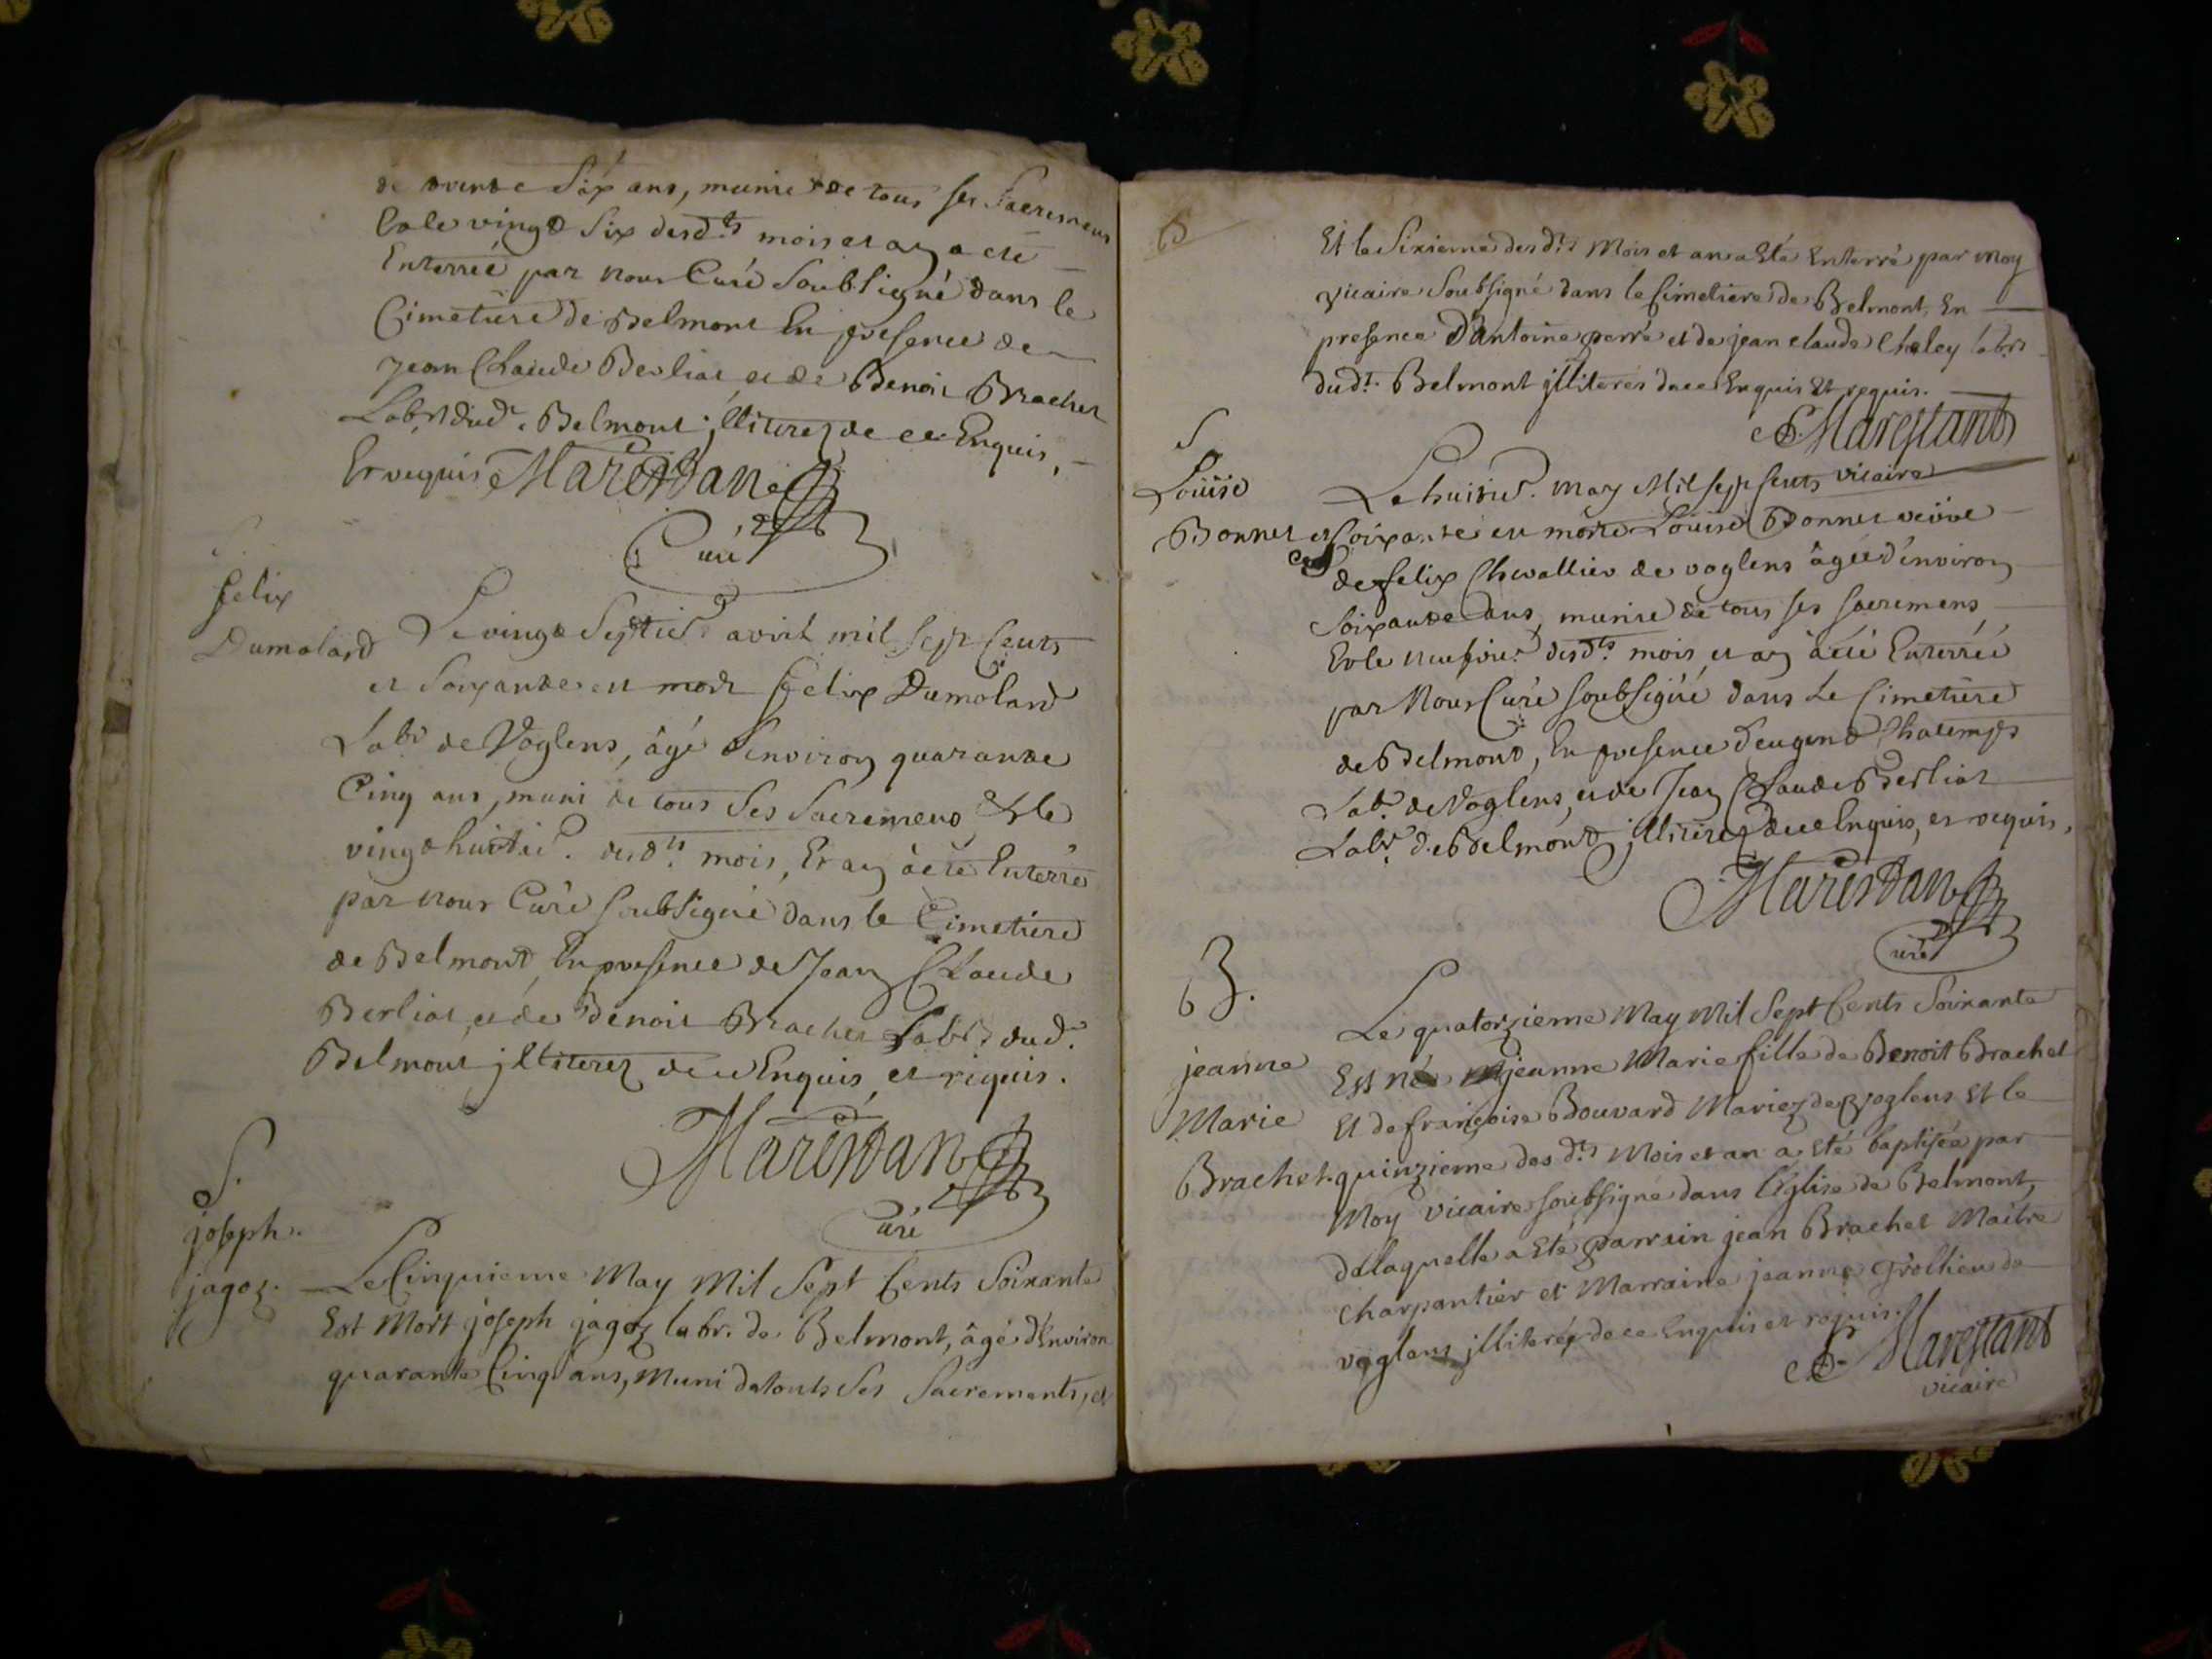 de trente Six ans, munie de tous ses Sacremens
Et le vingt Six desd.ts mois et an a eté
Enterreé par nous Curé Soubsigné dans le
Cimetiere de Belmont En presence de
Jean Claude Berliat et de Benoit Brachet
Lab.rs dud. Belmont jlliterez de ce Enquis,
Et requis Marestan
Curé
felix
Dumolard
Le vingt Septie. avril mil Sept Cents
et Soixante est mort felix Dumolard
Lab.r de Voglens, âgé d'environ quarante
Cinq ans, muni de tous Ses Sacremens, Et le
vingt huitie. desd.ts mois, Et an à eté Enterré
par nous Curé soubsigné dans le Cimetiere
de Belmont, En presence de Jean Claude
Berliat, et de Benoit Brachet Lab.rs dud.
Belmont jlliterez de ce Enquis, et requis.
Marestan
Curé
S.
joseph.
jagoz.
Le Cinquieme May Mil Sept Cents Soixante
Est Mort joseph jagoz labr. de Belmont, âgé d'Environ
quarante Cinq ans, Muni de touts Ses Sacrements, et
Et le Sixieme desd.ts Mois et an a Eté Enterré par Moy
Vicaire Soubsigné dans le Cimetiere de Belmont, En
presence D'Antoine perré et de jean claude Chaley labrs
dud.t Belmont jlliterés de ce Enquis Et requis.
Marestant
vicaire
S
Louïse
Bonnet
Le huitie. may Mil sept Cents
et Soixante est morte Louise Bonnet veüve
de felix Chevallier de voglens âgeé d'environ
Soixante ans, munie de tous ses sacremens,
Et le neufvie. desd.ts mois et an à eté Enterreé
par Nous Curé soubsigné dans Le Cimetiere
de Belmont, En presence d'eugend Chatemps
Lab.r de Voglens, et de Jean Claude Berliat
Lab.r de Belmont jlliterez de ce Enquis, et requis,
Marestan
Curé
B.
jeanne
Marie
Brachet.
Le quatorzieme May Mil Sept Cents Soixante
Est né jeanne Marie fille de Benoit Brachet
Et de françoise Bouvard Mariez de Voglens Et le
quinzieme des d.ts Mois et an a Eté baptisée par
Moy Vicaire soubsigné dans l'église de Belmont,
de laquelle a Eté parrein jean Brachet Maitre
Charpantier et Marraine jeanne Grollieu de
voglens jlliterés de ce Enquis et requis.
Marestant
vicaire